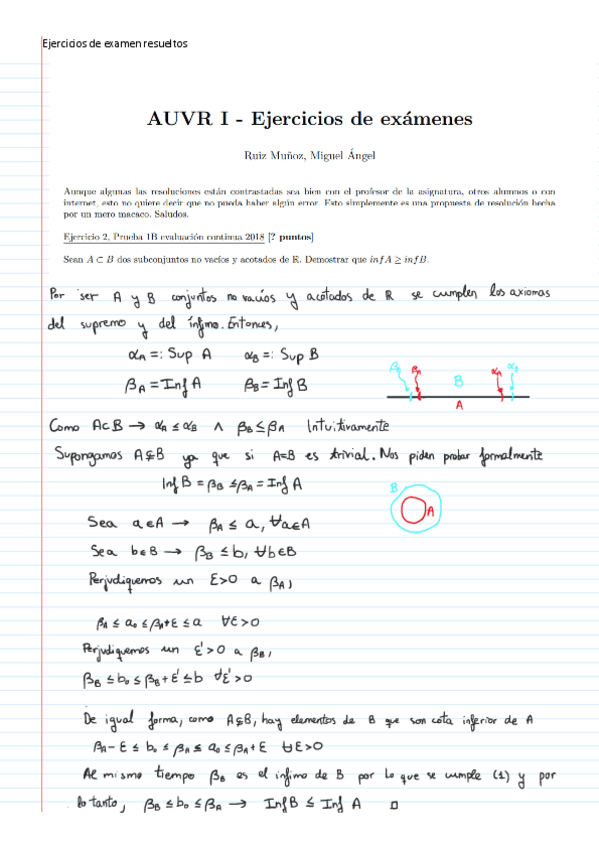 Ejercicios de examen resueltos
AUVR I - Ejercicios de exámenes
Ruiz Muñoz, Miguel Ángel
Aunque algunas las resoluciones están contrastadas sea bien con el profesor de la asignatura, otros alumnos o con
internet, esto no quiere decir que no pueda haber algún error. Esto simplemente es una propuesta de resolución hecha
por un mero macaco. Saludos.
Ejercicio 2, Prueba 1B evaluación continua 2018 [? puntos]
Sean A ⊂ B dos subconjuntos no vacíos y acotados de R. Demostrar que infA ≥ infB.
Por ser A y B conjuntos no vacíos y acotados de R se cumplen los axiomas
del supremo y del ínfimo. Entonces,
α_A =: Sup A α_B =: Sup B
β_A = Inf A β_B = Inf B
β_B β_A B α_A α_B
A
Como A⊂B → α_A ≤ α_B ∧ β_B ≤ β_A Intuitivamente
Supongamos A⊊B ya que si A=B es trivial. Nos piden probar formalmente
Inf B = β_B ≤ β_A = Inf A
B
A
Sea a∈A → β_A ≤ a, ∀a∈A
Sea b∈B → β_B ≤ b, ∀b∈B
Perjudiquemos un ε>0 a β_A,
β_A ≤ a₀ ≤ β_A+ε ≤ a ∀ε>0
Perjudiquemos un ε'>0 a β_B,
β_B ≤ b₀ ≤ β_B+ε' ≤ b ∀ε'>0
De igual forma, como A⊊B, hay elementos de B que son cota inferior de A
β_A-ε ≤ b₀ ≤ β_A ≤ a₀ ≤ β_A+ε ∀ε>0
Al mismo tiempo β_B es el ínfimo de B por lo que se cumple (1) y por
lo tanto, β_B ≤ b₀ ≤ β_A → Inf B ≤ Inf A □